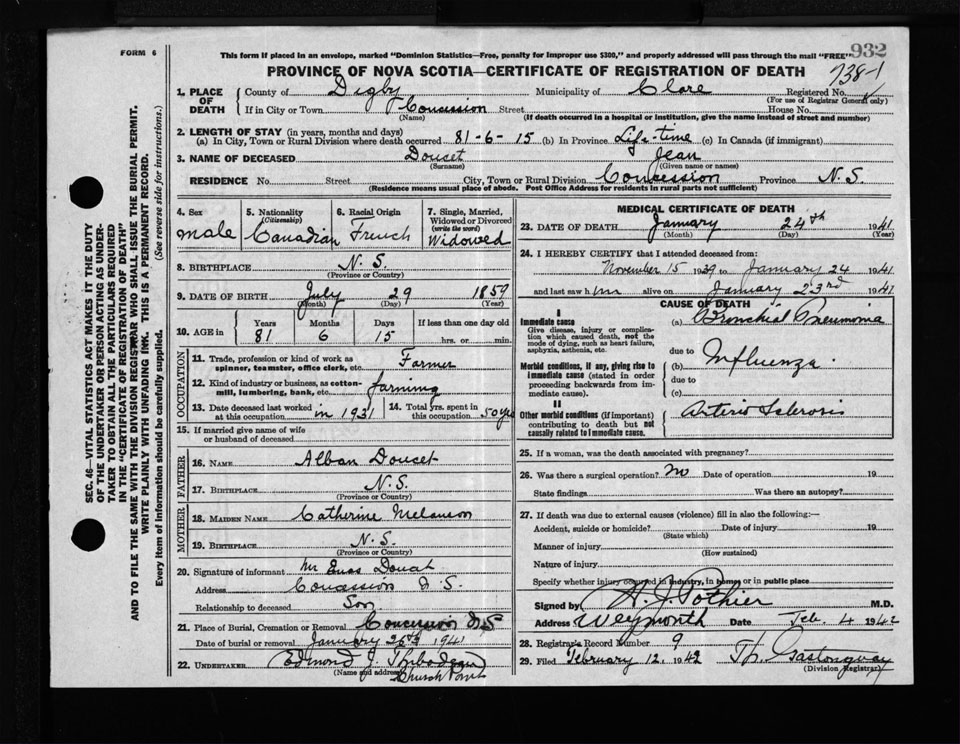 FORM 6
This form if placed in an envelope, marked "Dominion Statistics—Free, penalty for improper use $300," and properly addressed will pass through the mail "FREE"
932
PROVINCE OF NOVA SCOTIA—CERTIFICATE OF REGISTRATION OF DEATH
738-1
1. PLACE OF DEATH County of Digby Municipality of Clare Registered No.
(For use of Registrar General only)
If in City or Town Concession Street House No.
(Name) (If death occurred in a hospital or institution, give the name instead of street and number)
2. LENGTH OF STAY (in years, months and days)
(a) In City, Town or Rural Division where death occurred 81-6-15 (b) In Province Life-time (c) In Canada (if immigrant)
3. NAME OF DECEASED Doucet Jean
(Surname) (Given name or names)
RESIDENCE No. Street City, Town or Rural Division Concession Province N.S.
(Residence means usual place of abode. Post Office Address for residents in rural parts not sufficient)
4. Sex male
5. Nationality (Citizenship) Canadian
6. Racial Origin French
7. Single, Married, Widowed or Divorced (write the word) Widowed
8. BIRTHPLACE N.S.
(Province or Country)
9. DATE OF BIRTH July 29 1859
(Month) (Day) (Year)
10. AGE in Years Months Days If less than one day old
81 6 15 hrs. or min.
OCCUPATION
11. Trade, profession or kind of work as spinner, teamster, office clerk, etc. Farmer
12. Kind of industry or business, as cotton-mill, lumbering, bank, etc. farming
13. Date deceased last worked at this occupation in 1931
14. Total yrs. spent in this occupation 50 yrs
15. If married give name of wife or husband of deceased
FATHER
16. NAME Alban Doucet
17. BIRTHPLACE N.S.
(Province or Country)
MOTHER
18. MAIDEN NAME Catherine Melanson
19. BIRTHPLACE N.S.
(Province or Country)
20. Signature of informant Mr Doucet
Address Concession N.S.
Relationship to deceased Son
21. Place of Burial, Cremation or Removal Concession N.S
Date of burial or removal January 26th 1941
22. UNDERTAKER Edmond J. Thibodeau
(Name and address) Church Point
MEDICAL CERTIFICATE OF DEATH
23. DATE OF DEATH January 24th 1941
(Month) (Day) (Year)
24. I HEREBY CERTIFY that I attended deceased from:
November 15 1939 to January 24 1941
and last saw him alive on January 23rd 1941
CAUSE OF DEATH
I
Immediate cause
Give disease, injury or complication which caused death, not the mode of dying, such as heart failure, asphyxia, asthenia, etc.
(a) Bronchial Pneumonia
due to
Morbid conditions, if any, giving rise to immediate cause (stated in order proceeding backwards from immediate cause).
(b) Influenza.
due to
(c)
II
Other morbid conditions (if important) contributing to death but not causally related to immediate cause.
Arterio Sclerosis
25. If a woman, was the death associated with pregnancy?
26. Was there a surgical operation? No Date of operation 19
State findings Was there an autopsy?
27. If death was due to external causes (violence) fill in also the following:—
Accident, suicide or homicide? Date of injury 19
(State which)
Manner of injury
(How sustained)
Nature of injury
Specify whether injury occurred in industry, in home, or in public place
Signed by A. J. Pothier M.D.
Address Weymouth Date Feb. 4 1942
28. Registrar's Record Number 9
29. Filed February 12, 1942
(Division Registrar)
SEC. 46—VITAL STATISTICS ACT MAKES IT THE DUTY
OF THE UNDERTAKER OR PERSON ACTING AS UNDER-
TAKER TO OBTAIN ALL THE PARTICULARS REQUIRED
IN THE "CERTIFICATE OF REGISTRATION OF DEATH"
AND TO FILE THE SAME WITH THE DIVISION REGISTRAR WHO SHALL ISSUE THE BURIAL PERMIT.
WRITE PLAINLY WITH UNFADING INK. THIS IS A PERMANENT RECORD.
Every item of information should be carefully supplied. (See reverse side for instructions.)